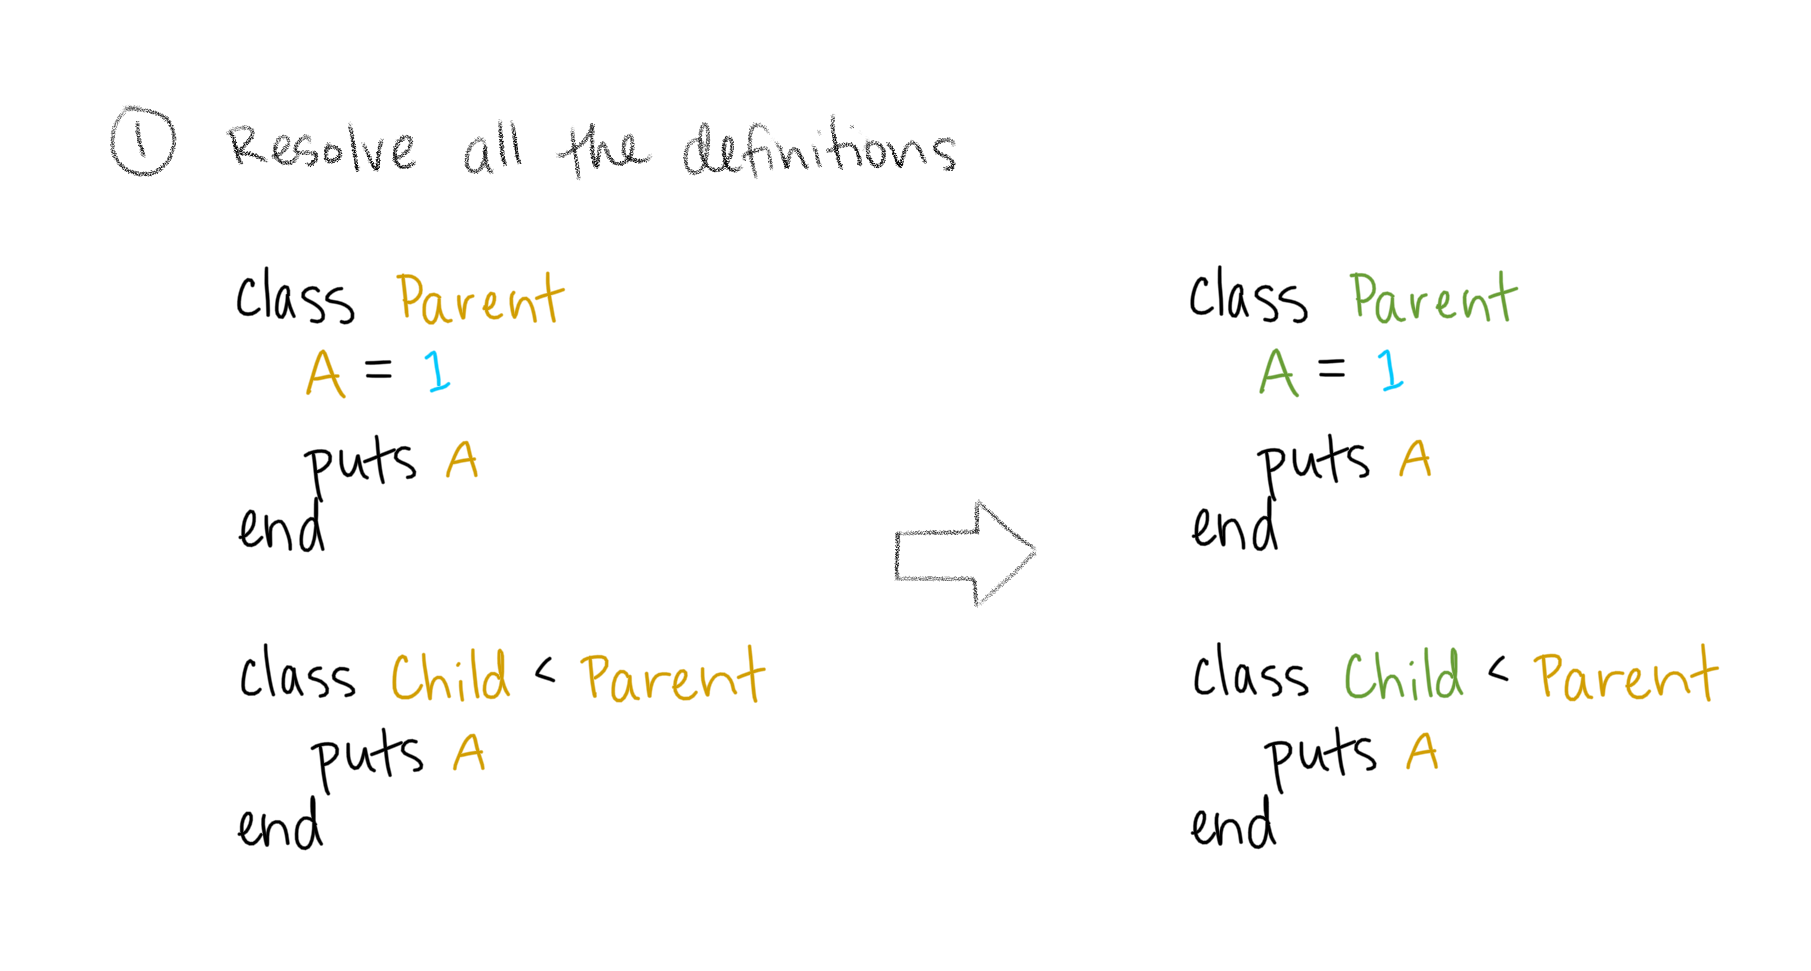 ① Resolve all the definitions
class Parent
A = 1
puts A
end
class Child < Parent
puts A
end
class Parent
A = 1
puts A
end
class Child < Parent
puts A
end